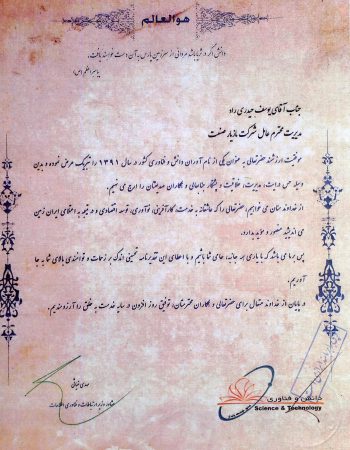 هوالعالم
دانش اگر در ثریا باشد مردانی از سرزمین پارس به آن دست خواهند یافت.
پیامبر اعظم (ص)
جناب آقای یوسف حیدری راد
مدیریت محترم عامل شرکت مازیار صنعت
موفقیت ارزشمند حضرتعالی به عنوان یکی از نام آوران دانش و فناوری کشور در سال ۱۳۹۱ را تبریک عرض نموده و بدین
وسیله حس درایت، مدیریت، خلاقیت و ابتکار جنابعالی و همکاران محترمتان را ارج می نهیم.
از خداوند منان می خواهیم، حضرتعالی را که عاشقانه به خدمت، کارآفرینی، نوآوری، توسعه اقتصادی و در نتیجه به اعتلای ایران زمین
می اندیشد منصور و موید بدارد.
پس بر ما می باشد که با یاری همه جانبه، حامی شما باشیم و با اعطای این تقدیرنامه تحسینی اندک بر زحمات و توانمندی بالای شما به جا
آوریم.
در پایان از خداوند متعال برای حضرتعالی و همکاران محترمتان، توفیق روز افزون در سایه خدمت به خلق را آرزومندیم.
مهدی
مشاور وزیر ارتباطات و فناوری اطلاعات
دانش و فناوری
Science & Technology